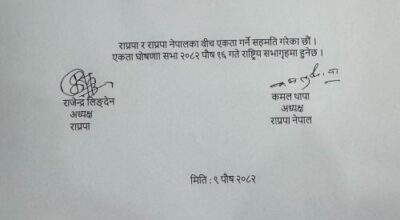 राप्रपा र राप्रपा नेपालका वीच एकता गर्ने सहमति गरेका छौं ।
एकता घोषणा सभा २०८२ पौष १६ गते राष्ट्रिय सभागृहमा हुनेछ ।
राजेन्द्र लिङ्देन
अध्यक्ष
राप्रपा
कमल थापा
अध्यक्ष
राप्रपा नेपाल
मिति : ९ पौष २०८२